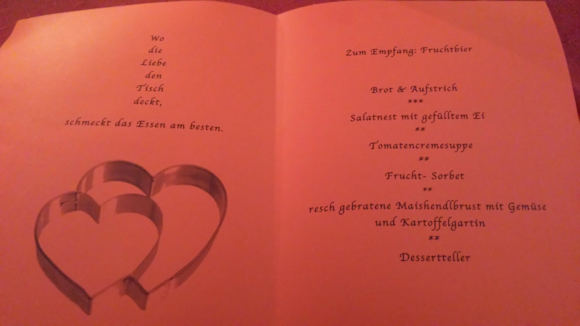 Wo
die
Liebe
den
Tisch
deckt,
schmeckt das Essen am besten.
Zum Empfang: Fruchtbier
Brot & Aufstrich
***
Salatnest mit gefülltem Ei
**
Tomatencremesuppe
**
Frucht- Sorbet
**
resch gebratene Maishendlbrust mit Gemüse
und Kartoffelgartin
**
Dessertteller